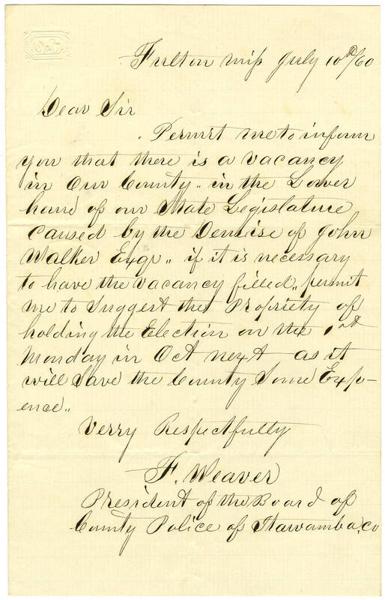 Fulton miss July 10th/60
Dear Sir
Permit me to inform
you that there is a vacancy
in Our County,, in the Lower
hand of our State Legislature
caused by the Demise of John
Walker Esqr,, if it is necessary
to have the vacancy filled,, permit
me to Suggest the Propriety of
holding the Election on the 1st
Monday in Oct next as it
will Save the County Some Exp-
ence,,
Verry Respectfully
F. Weaver
President of the Board of
County Police of Itawamba, Co